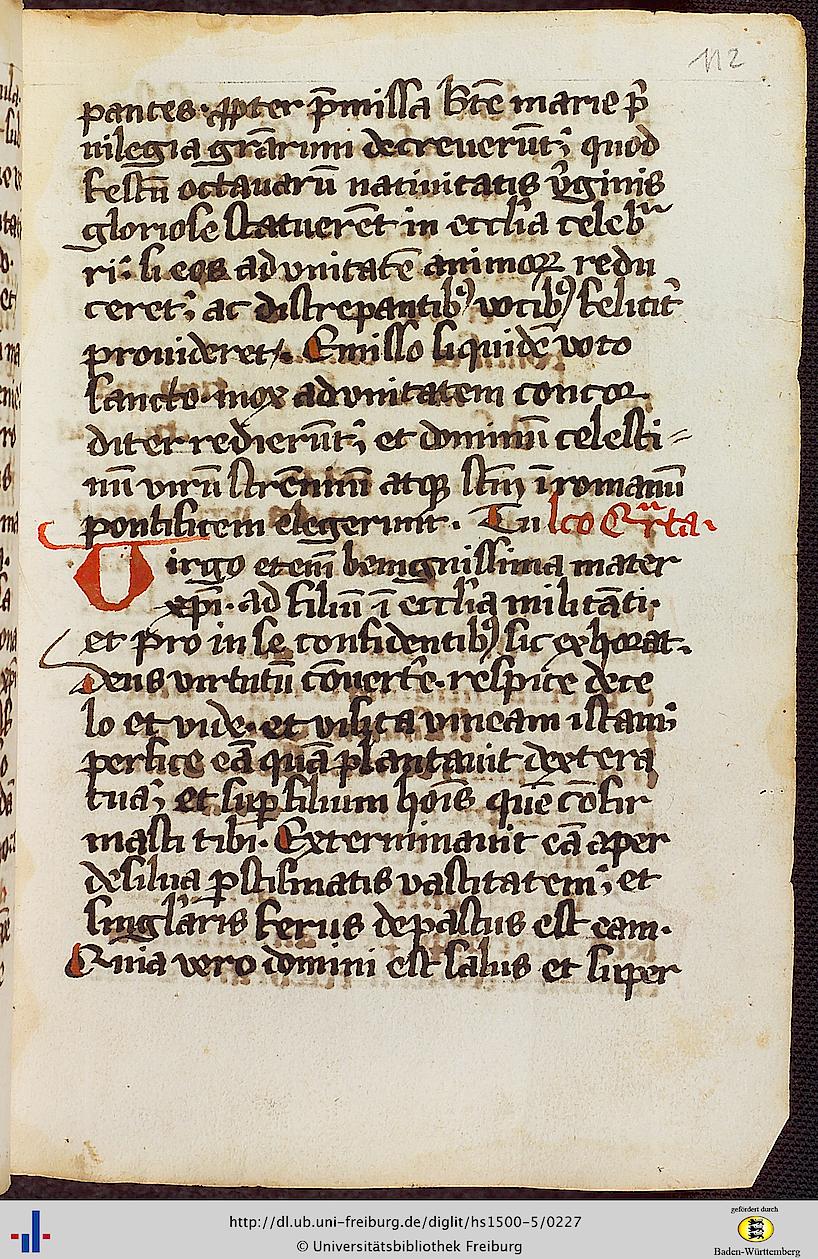 112
pantes· ꝓpter p̄missa bt̄e marie p̾
uilegia gr̄arum decreuerūt; quod
festū octauarū natiuitatis v̾ginis
gloriose statuerēt in ecclīa celeb
ri· si eos ad vnitatē animoꝝ redu
ceret; ac discrepantibꝰ votibꝰ felicit̾
prouideret· Emisso siquidē voto
sancto· mox ad vnitatem concor
diter redierūt; et dominū celesti=
nū virū strēnuū atqꝫ ī romanū
pontificem elegerunt· Tu
lco Qrta·
Uirgo etem̄ benignissima mater
xp̄i· ad filiū ī ecclīa militāti·
et pro in se confidentibꝰ sic exhorat·
Deus virtutū cōuert̾e· respice de ce
lo et vide· et visita vineam istam;
perfice eā quā plantauit dextera
tua; et sup̱ filium hoīs quē cōfir
masti tibi· Exterminauit eā aper
de silua vastitatem; et
singl̾aris ferus depastus est eam·
Quia vero domini est salus et super
http://dl.ub.uni-freiburg.de/diglit/hs1500-5/0227
© Universitätsbibliothek Freiburg
gefördert durch
Baden-Württemberg